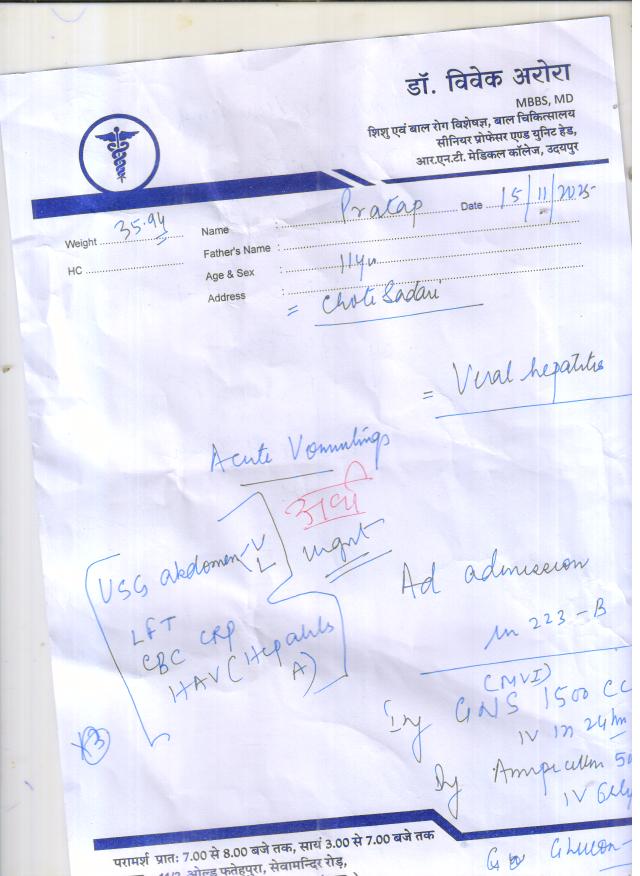 डॉ. विवेक अरोरा
MBBS, MD
शिशु एवं बाल रोग विशेषज्ञ, बाल चिकित्सालय
सीनियर प्रोफेसर एण्ड युनिट हेड,
आर.एन.टी. मेडिकल कॉलेज, उदयपुर
Weight 35.94
HC
Name : Pratap Date 15/11/2025
Father's Name :
Age & Sex : 11yr
Address : = Choti Sadari
= Viral hepatitis
Acute Vomitings
अर्जेंट
USG abdomen
mgnt
LFT
CBC CRP
HAV (Hepatitis A)
Ad admission
in 223-B
(MVI)
Inj GNS 1500 CC
IV in 24 hr
Inj Ampicillin 50
IV 6rly
परामर्श प्रातः 7.00 से 8.00 बजे तक, सायं 3.00 से 7.00 बजे तक
ओल्ड फतेहपुरा, सेवामन्दिर रोड़,